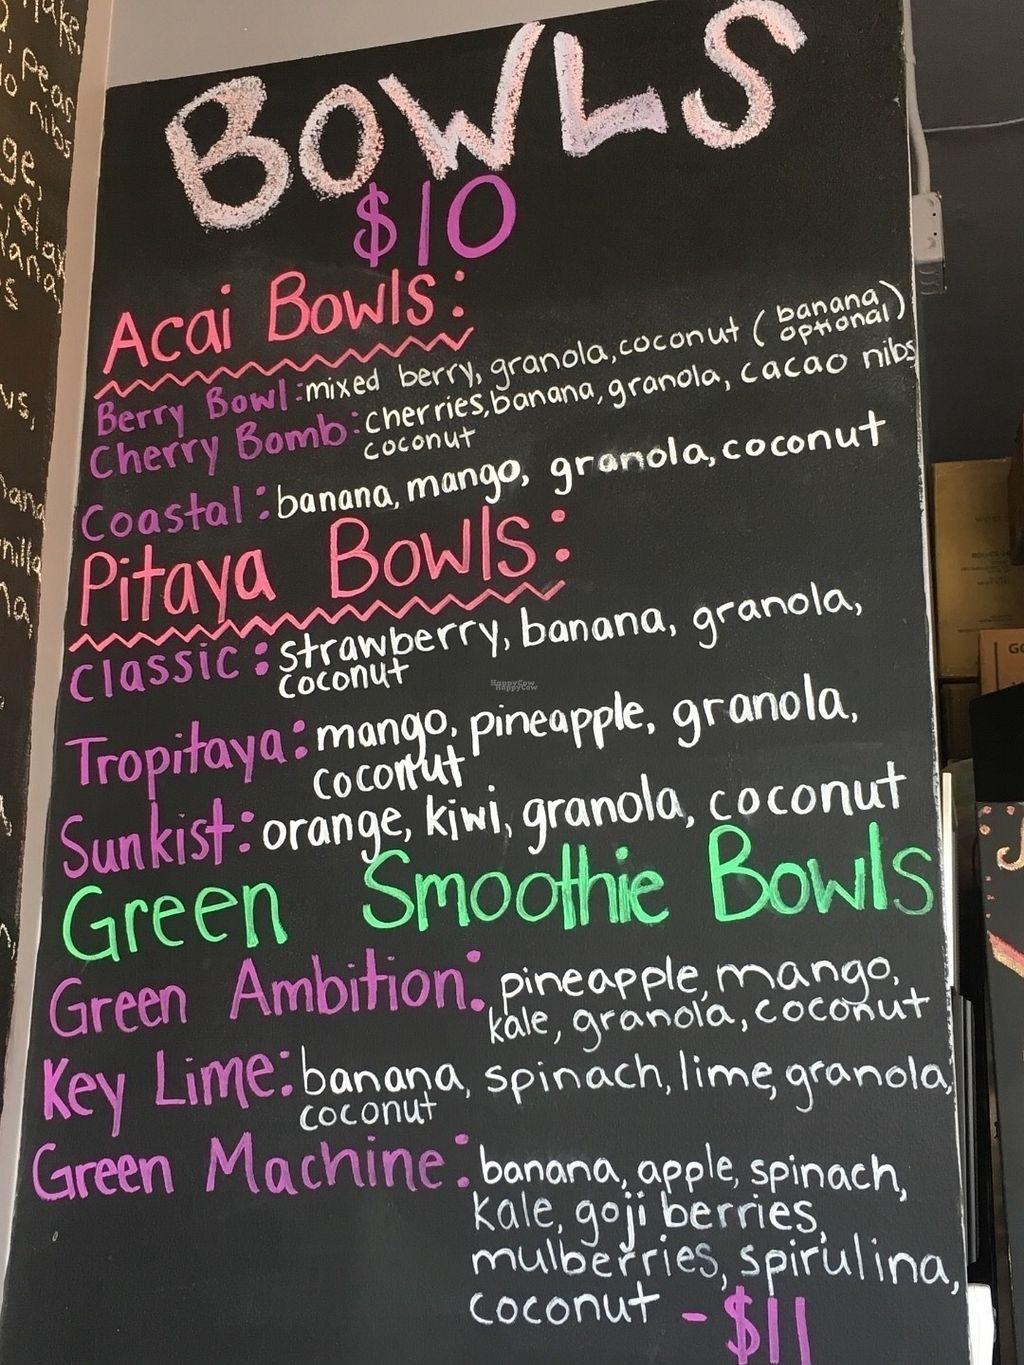 BOWLS
$10
Acai Bowls:
Berry Bowl: mixed berry, granola, coconut (banana optional)
Cherry Bomb: cherries, banana, granola, cacao nibs
coconut
Coastal: banana, mango, granola, coconut
Pitaya Bowls:
Classic: strawberry, banana, granola,
coconut
Tropitaya: mango, pineapple, granola,
coconut
Sunkist: orange, kiwi, granola, coconut
Green Smoothie Bowls
Green Ambition: pineapple, mango,
kale, granola, coconut
Key Lime: banana, spinach, lime, granola,
coconut
Green Machine: banana, apple, spinach,
kale, goji berries,
mulberries, spirulina,
coconut - $11
HappyCow
HappyCow
peas
nibs